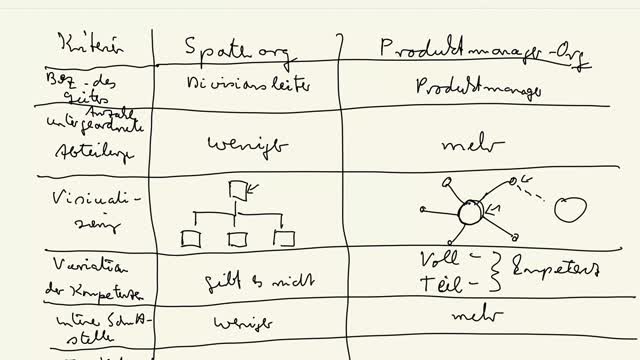 Kriterien Spartenorg Produktmanager-Org
Bez. des Leiters Divisionsleiter Produktmanager
Anzahl
untergeordnete
Abteilungen weniger mehr
Visuali-
sierung
Variation
der Kompetenzen gibt es nicht Voll- Teil- Kompetenz
interne Schnitt-
stellen weniger mehr